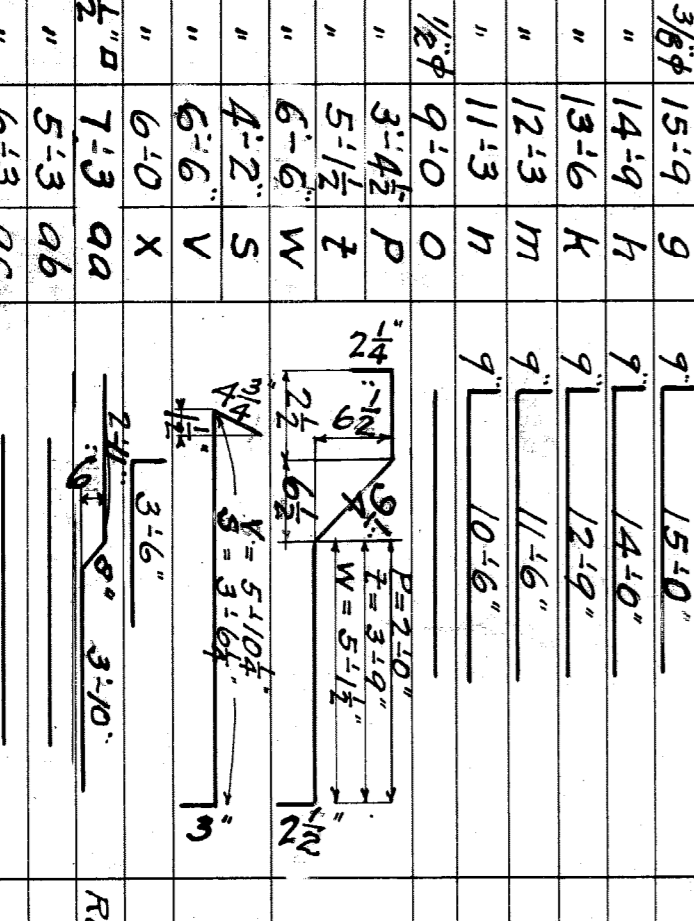 3/8"φ 15'-9 g 9" 15'-0"
" 14'-9 h 9" 14'-0"
" 13'-6 k 9" 12'-9"
" 12'-3 m 9" 11'-6"
" 11'-3 n 9" 10'-6"
1/2"φ 9'-0 o
" 3'-4 1/2" p
" 5'-1 1/2 t
" 6'-6" w
2 1/4" 2 1/2 6 1/2 6 1/2 9 1/4"
P = 2'-0"
t = 3'-9"
W = 5'-1 1/2"
2 1/2"
" 4'-2" s
" 6'-6" v
4 3/4" 1 1/2"
V = 5'-10 1/4"
S = 3'-6 1/4"
3"
" 6'-0 x 3'-6"
1/2"□ 7'-3 aa 2'-11" 6" 8" 3'-10"
" 5'-3 ab
" 6'-3